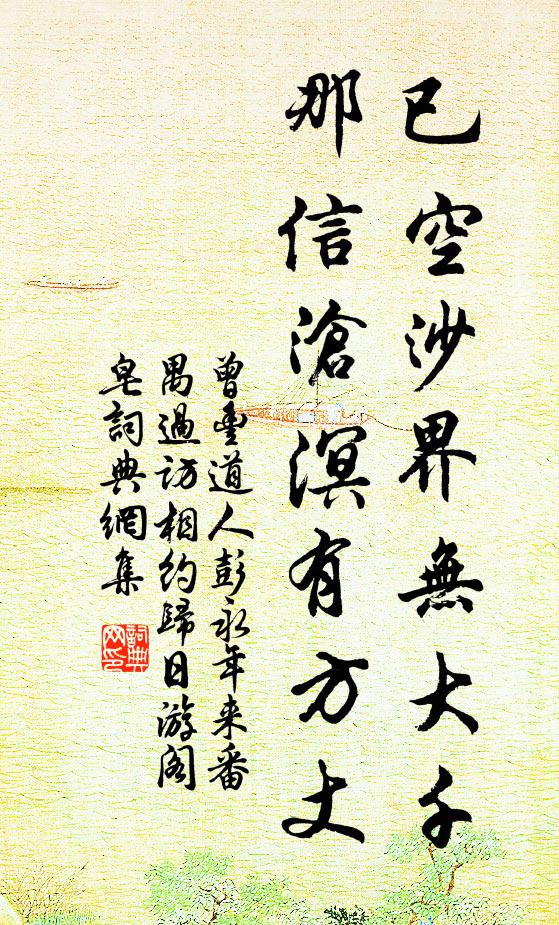 已空沙界無大千
那信滄溟有方丈
曾雪道人彭永年来番
禺過访相约歸日游阁
皂詞典網集
詞典
网印